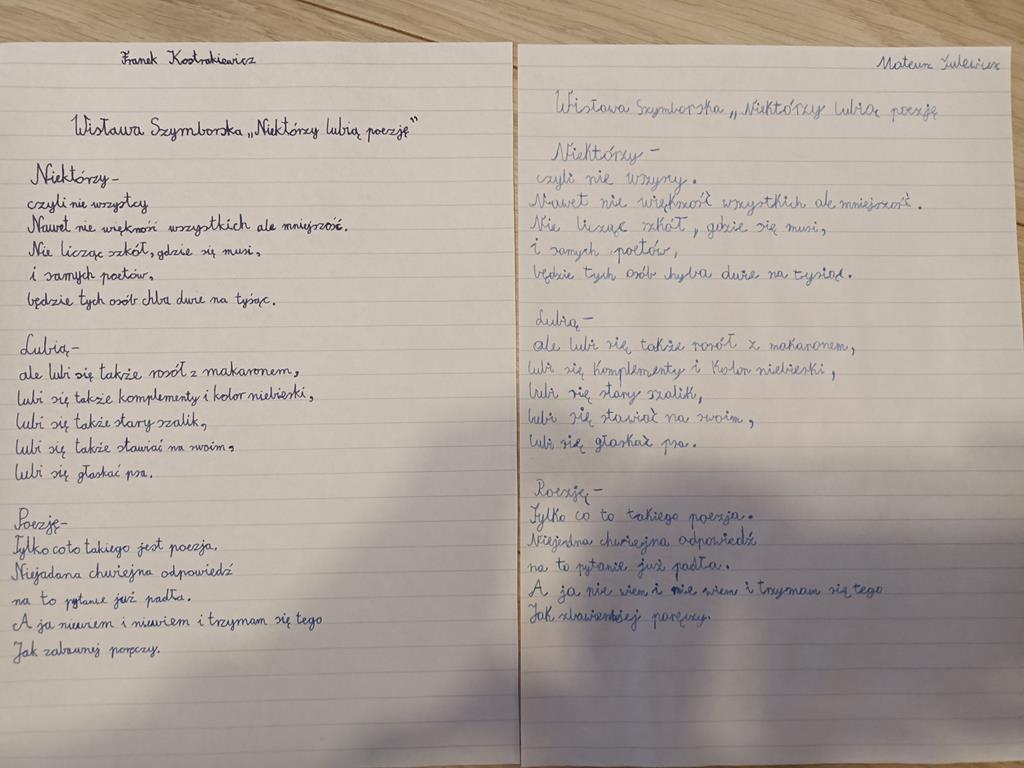 Franek Kostrakiewicz
Wisława Szymborska „Niektórzy lubią poezję"
Niektórzy-
czyli nie wszystcy
Nawet nie więkność wszystkich ale mniejszość.
Nie licząc szkół, gdzie się musi,
i samych poetów,
będzie tych osób chba dwie na tyśąc.
Lubią-
ale lubi się także rosół z makaronem,
lubi się także komplementy i kolor niebieski,
lubi się także stary szalik,
lubi się także stawiać na swoim,
lubi się głaskać psa.
Poezję-
Tylko coto takiego jest poezja.
Niejadana chwiejna odpowiedź
na to pytanie już padła.
A ja niewiem i niewiem i trzymam się tego
Jak zabawnej poręczy.
Mateusz
Wisława Szymborska „Niektórzy lubią poezję
Niektórzy-
czyli nie wszyscy.
Nawet nie większość wszystkich ale mniejszość.
Nie licząc szkół, gdzie się musi,
i samych poetów,
będzie tych osób chyba dwie na tysiąc.
Lubią-
ale lubi się także rosół z makaronem,
lubi się komplementy i kolor niebieski,
lubi się stary szalik,
lubi się stawiać na swoim,
lubi się głaskać psa.
Poezję-
Tylko co to takiego poezja.
Niejedna chwiejna odpowiedź
na to pytanie już padła.
A ja nie wiem i nie wiem i trzymam się tego
Jak poręczy.